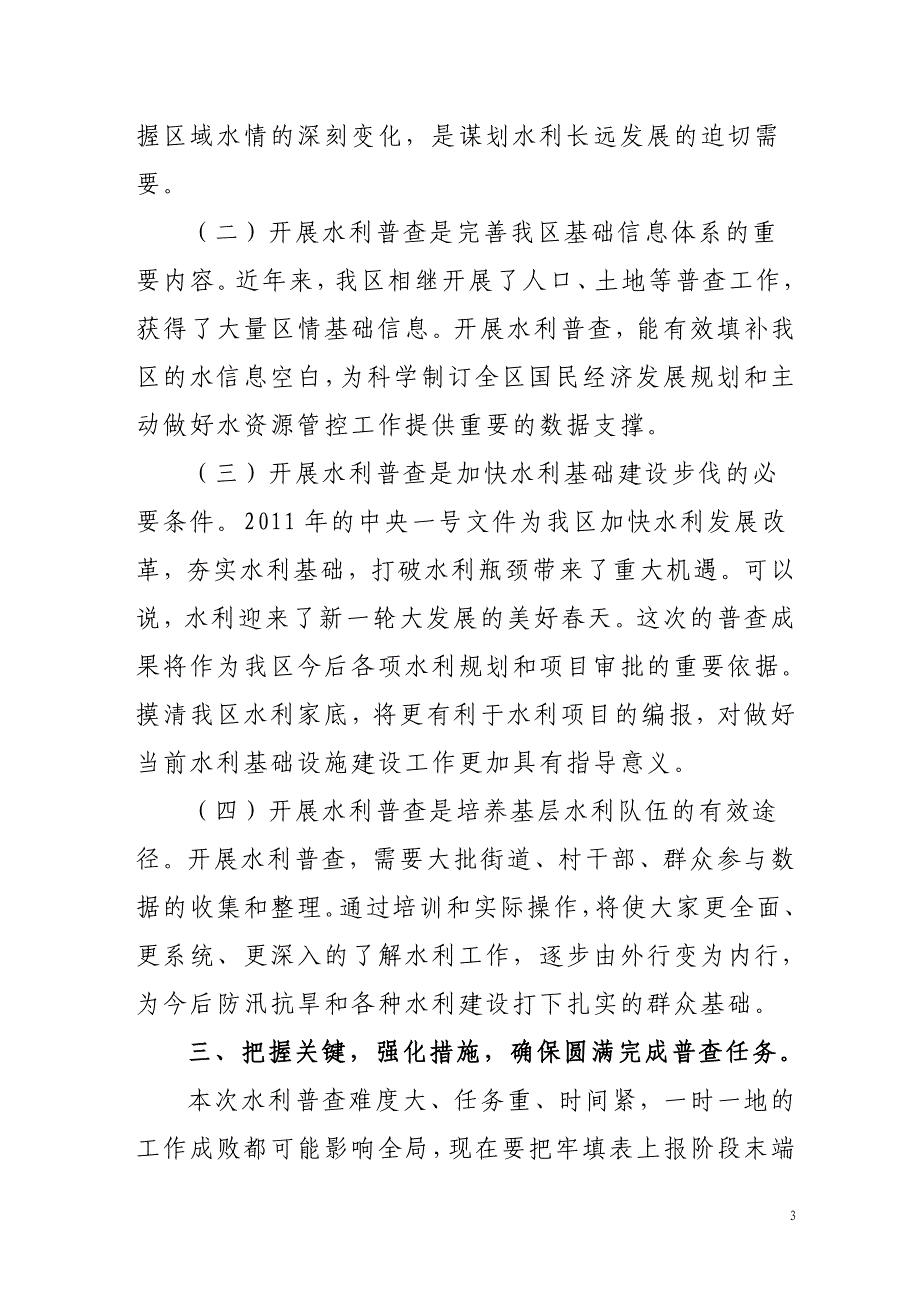 握区域水情的深刻变化，是谋划水利长远发展的迫切需
要。
（二）开展水利普查是完善我区基础信息体系的重
要内容。近年来，我区相继开展了人口、土地等普查工作，
获得了大量区情基础信息。开展水利普查，能有效填补我
区的水信息空白，为科学制订全区国民经济发展规划和主
动做好水资源管控工作提供重要的数据支撑。
（三）开展水利普查是加快水利基础建设步伐的必
要条件。2011年的中央一号文件为我区加快水利发展改
革，夯实水利基础，打破水利瓶颈带来了重大机遇。可以
说，水利迎来了新一轮大发展的美好春天。这次的普查成
果将作为我区今后各项水利规划和项目审批的重要依据。
摸清我区水利家底，将更有利于水利项目的编报，对做好
当前水利基础设施建设工作更加具有指导意义。
（四）开展水利普查是培养基层水利队伍的有效途
径。开展水利普查，需要大批街道、村干部、群众参与数
据的收集和整理。通过培训和实际操作，将使大家更全面、
更系统、更深入的了解水利工作，逐步由外行变为内行，
为今后防汛抗旱和各种水利建设打下扎实的群众基础。
三、把握关键，强化措施，确保圆满完成普查任务。
本次水利普查难度大、任务重、时间紧，一时一地的
工作成败都可能影响全局，现在要把牢填表上报阶段末端
3